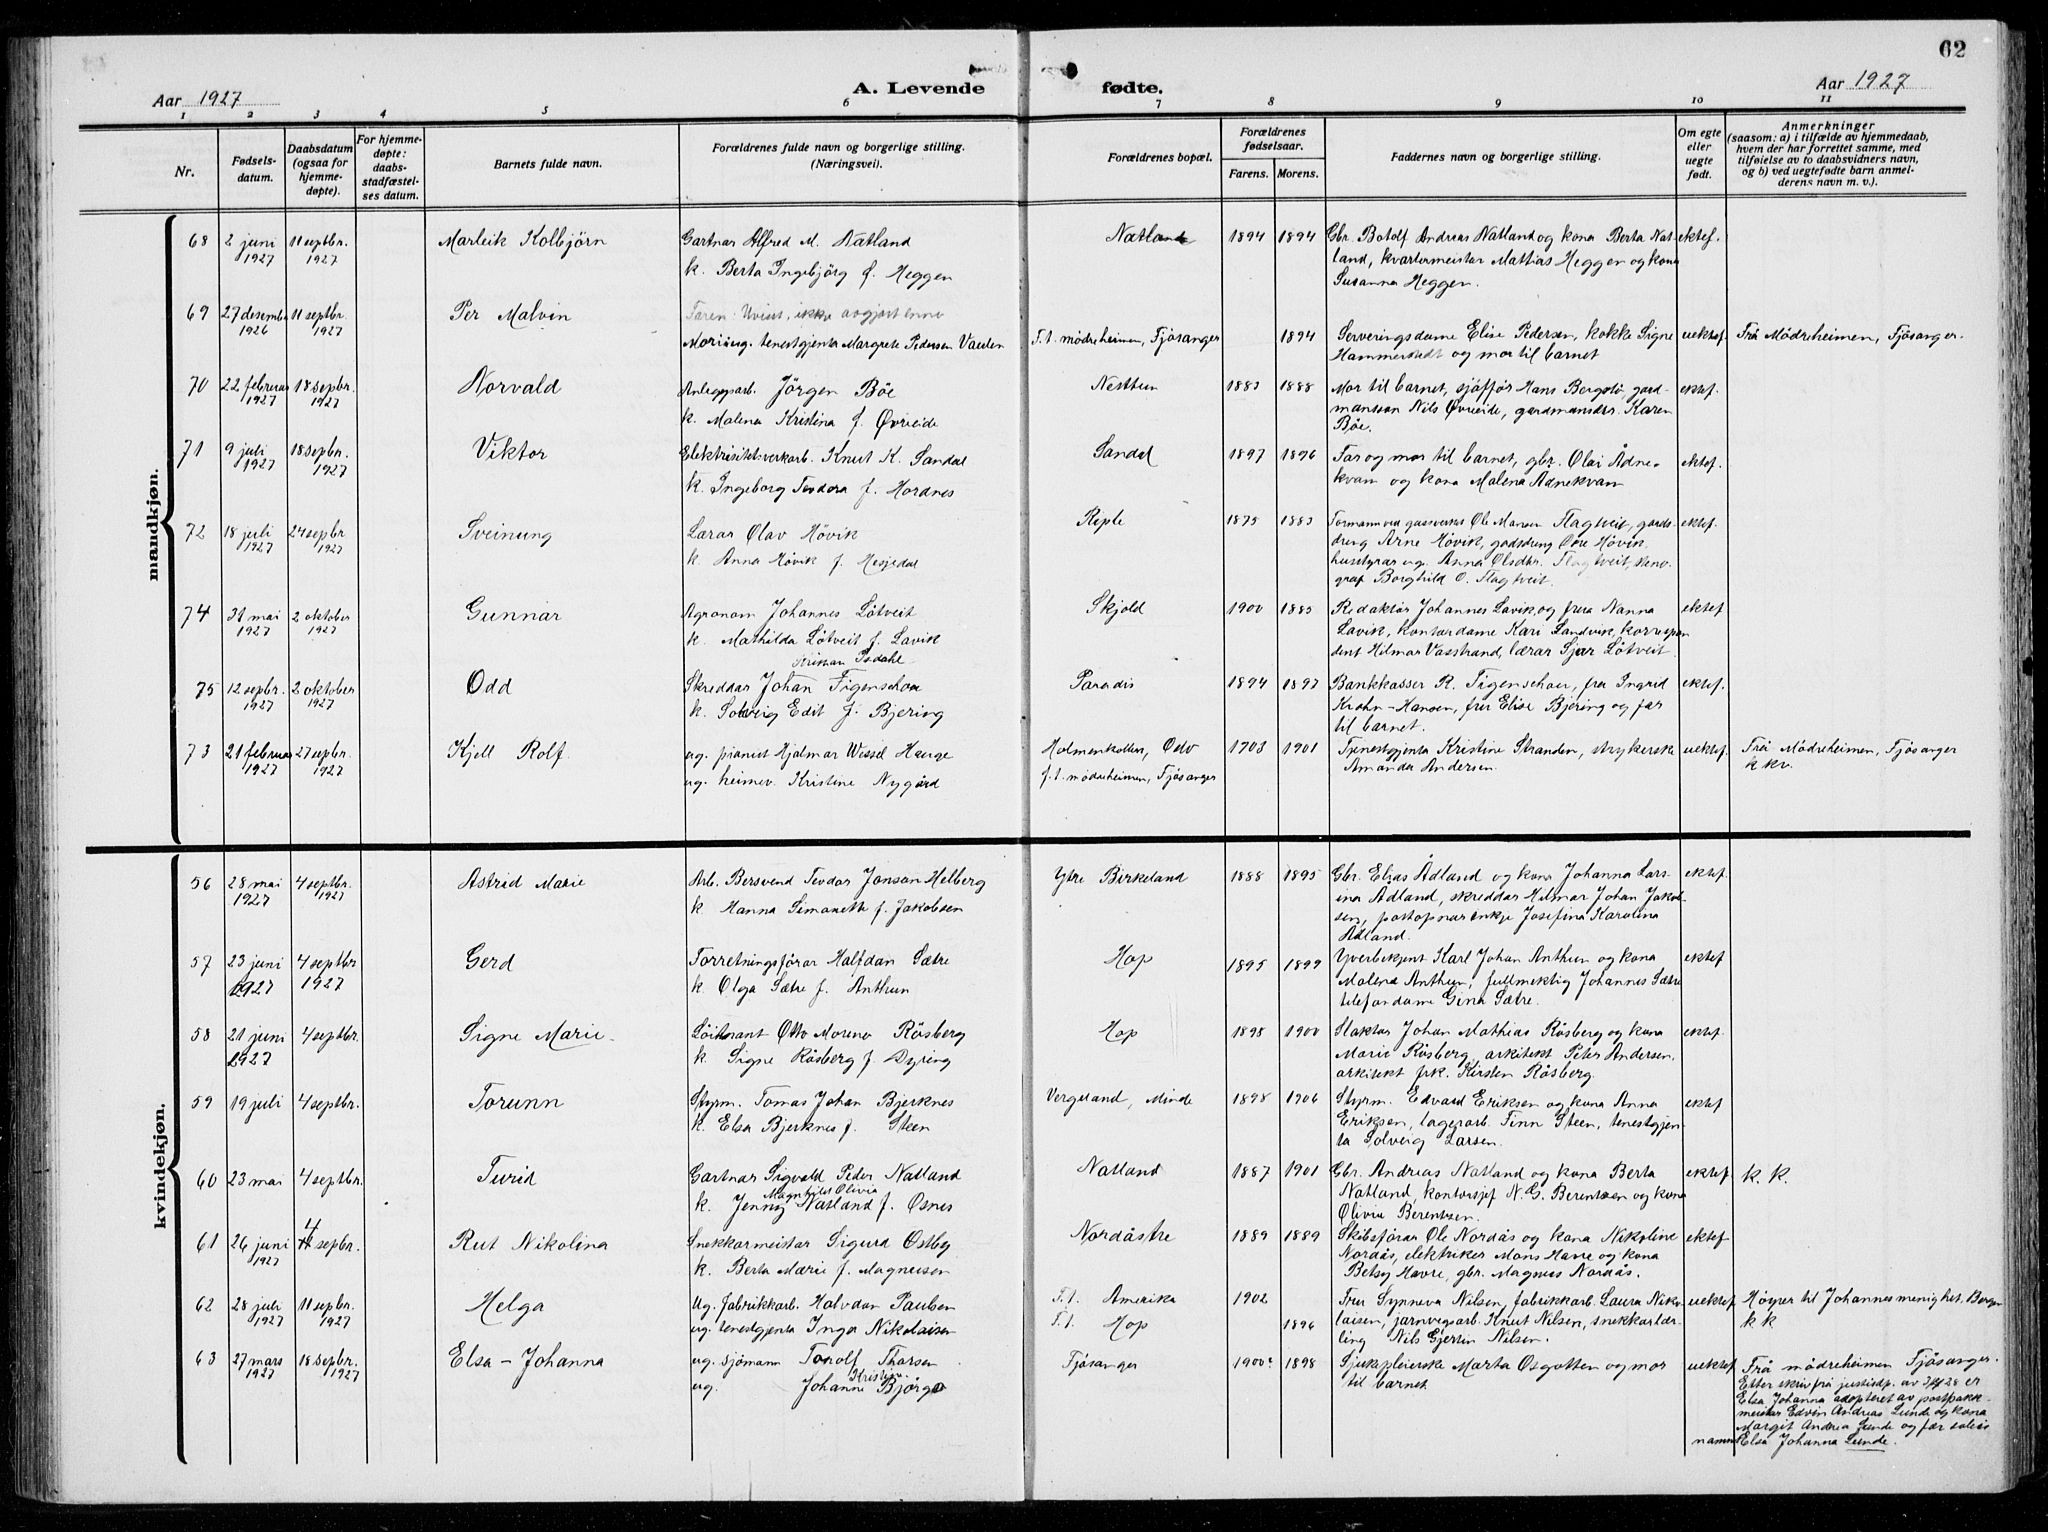 62
Aar 1927
A. Levende fødte.
Aar 1927
1 2 3 4 5 6 7 8 9 10 11
Nr.
Fødsels-
datum.
Daabsdatum
(ogsaa for
hjemme-
døpte).
For hjemme-
døpte:
daabs-
stadfæstel-
ses datum.
Barnets fulde navn.
Forældrenes fulde navn og borgerlige stilling.
(Næringsvei).
Forældrenes bopæl.
Forældrenes
fødselsaar.
Farens. Morens.
Faddernes navn og borgerlige stilling.
Om egte
eller
uegte
født.
Anmerkninger
(saasom: a) i tilfælde av hjemmedaab,
hvem der har forrettet samme, med
tilføielse av to daabsvidners navn,
og b) ved uegtefødte barn anmel-
derens navn m. v.).
mandkjøn.
68 2 juni 11 septbr. Marleik Kolbjörn Gartnar Alfred M. Natland Natland 1894 1894 Gbr. Botolf Andreas Natland og kona Berta Nat- ektef.
1927 1927 k. Berta Ingebjörg f. Heggen land, kvartermeister Mattias Heggen og kona
Susanna Heggen.
69 27 desember 11 septbr. Per Malvin Faren: Uvisst, ikkje avgjort enno
1926 1927 Mori: ug. tenestgjenta Margrete Pedersen Vaulen F. t. mödreheimen, Fjösanger 1894 Serveringsdame Elise Pedersen, kokke Signe uektef. Frå Mödreheimen, Fjösanger.
Hammerstedt og mor til barnet
70 22 februar 18 septbr. Norvald Anleggsarb. Jörgen Böe Nesttun 1883 1888 Mor til barnet, sjåffør Hans Bergstö, gard- ektef.
1927 1927 k. Malena Kristina f. Övreide mansson Nils Övreide, gardmansdtr. Karen
Böe.
71 9 juli 18 septbr. Viktor Elektrisitetsverkarb. Knut K. Sandal Sandal 1897 1896 Far og mor til barnet, gbr. Olai Ådne- ektef.
1927 1927 k. Ingeborg Teodora f. Hordnes kvam og kona Malena Ådnekvam
72 18 juli 24 septbr Sveinung Lærar Olav Hövik Riple 1875 1883 Formann ved gassverket Ole Marson Flagtveit, gards- ektef.
1927 1927 k. Anna Hövik f. Hesjedal dreng Arne Hövik, gardsdreng Ove Hövik,
husstyrar ug. Anna Olsdtr. Flagtveit, steno-
graf Borghild O. Flagtveit.
74 31 mai 2 oktober Gunnar Agronom Johannes Lötveit Skjold 1900 1883 Redaktör Johannes Lavik, og frua Nanna ektef
1927 1927 k. Mathilda Lötveit f. Lavik Lavik, kontordame Kari Landvik, korrespon
dent Hilmar Vasstrand, lærar Sjur Lötveit.
75 12 septbr. 2 oktober Odd Skreddar Johan Figenschou Paradis 1894 1897 Bankkasser R. Figenschou, fru Ingrid ektef.
1927 1927 k. Solveig Edit f. Bjering Krohn-Hansen, fru Elise Bjering og far
til barnet.
73 21 februar 27 septbr. Kjell Rolf. ug. pianist Hjalmar Wessel Hauge Holmenkollen, Oslo 1903 1901 Tjenestgjenta Kristine Stranden, strykerske uektef. Frå Mödreheimen, Fjösanger
1927 1927 ug. heimev. Kristine Nygård f. t. mödreheimen, Fjösanger Amanda Andersen. k kv.
kvindekjøn.
56 28 mai 4 septbr. Astrid Marie Arb. Bersvend Teodor Jonson Helberg Ytre Birkeland 1888 1895 Gbr. Elias Ådland og kona Johanna Lars- ektef.
1927 1927 k. Hanna Simonette f. Jakobsen ina Ådland, skreddar Hilmar Johan Jakob-
sen, postopnar enkje Josefina Karolina
Ådland.
57 23 juni 4 septbr Gerd Forretningsförar Halfdan Sætre Hop 1895 1899 Yverbetjent Karl Johan Anthun og kona ektef
1927 1927 k. Olga Sætre f. Anthun Malena Anthun, fullmektig Johannes Sætre
telefondame Gina Sætre.
58 21 juni 4 septbr. Signe Marie. Löitnant Otto Moreno Rösberg Hop 1898 1900 Slaktar Johan Mathias Rösberg og kona ektef.
1927 k. Signe Rösberg f. Dyring Marie Rösberg, arkitekt Peter Andersen,
arkitekt frk. Kirsten Rösberg.
59 19 juli 4 septbr. Torunn Styrm. Tomas Johan Bjerknes Vergeland, Minde 1898 1906 Styrm. Edvard Eriksen og kona Anna ektef
k. Elsa Bjerknes f. Steen Eriksen, lagerarb. Finn Steen, tenestgjen-
ta Solveig Larsen.
60 23 mai 4 septbr. Turid Gartnar Sigvald Peder Natland Natland 1887 1901 Gbr. Andreas Natland og kona Berta ektef. k. k.
Magnhild Olivia
k. Jenny Natland f. Osnes Natland, kontorsjef N. G. Berentsen og kona
Olivia Berentsen.
61 26 juni 4 septbr. Rut Nikolina Snekkarmeistar Sigurd Ostby Nordåstre 1889 1889 Skibsförar Ole Nordås og kona Nikoline ektef
1927 k. Berta Marie f. Magnussen Nordås, elektriker Mons Havre og kona
Betsy Havre, gbr. Magnus Nordås.
62 28 juli 11 septbr. Helga Ug. fabrikkarb. Halvdan Paulsen F. t. Amerika 1902 Fru Synneva Nilsen, fabrikkarb. Laura Niko- uektef Höyrer til Johannesmenighet, Bergen
1927 1927 ug. tenestgjenta Inga Nikolaisen F. t. Hop 1896 laisen, jarnvegsarb. Knut Nilsen, snekkarlær- k k
ling Nils Gjertin Nilsen.
63 27 mars 18 septbr. Elsa-Johanna ug. sjömann Torolf Thorsen Fjösanger 1900? 1898 Sjukepleierske Marta Osgotten og mor uektef Frå mödreheimen Fjösanger.
1927 1927 ug. Johanne Kristine Bjorge til barnet. Etter skriv frå justisdp. av 3/1 28 er
Elsa Johanna adopteret av postpakk-
meister Edvin Andreas Lunde og kona
Margit Andrea Lunde og får soleis
namnet Elsa Johanna Lunde.